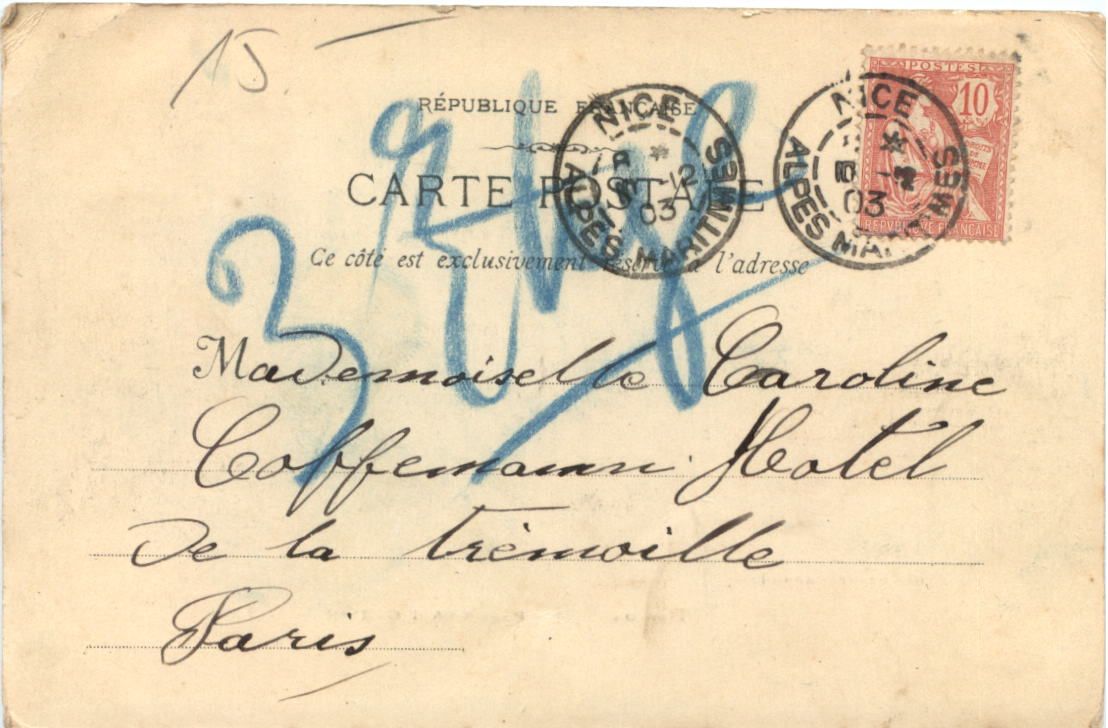 15
RÉPUBLIQUE FRANÇAISE
CARTE POSTALE
Ce côté est exclusivement réservé à l'adresse
NICE
12
03
ALPES MARITIMES
NICE
03
ALPES MARITIMES
POSTES
10
DROITS
DE
L'HOMME
REPVBLIQVE FRANÇAISE
Mademoiselle Caroline
Coffemann Hotel
de la trémoille
Paris